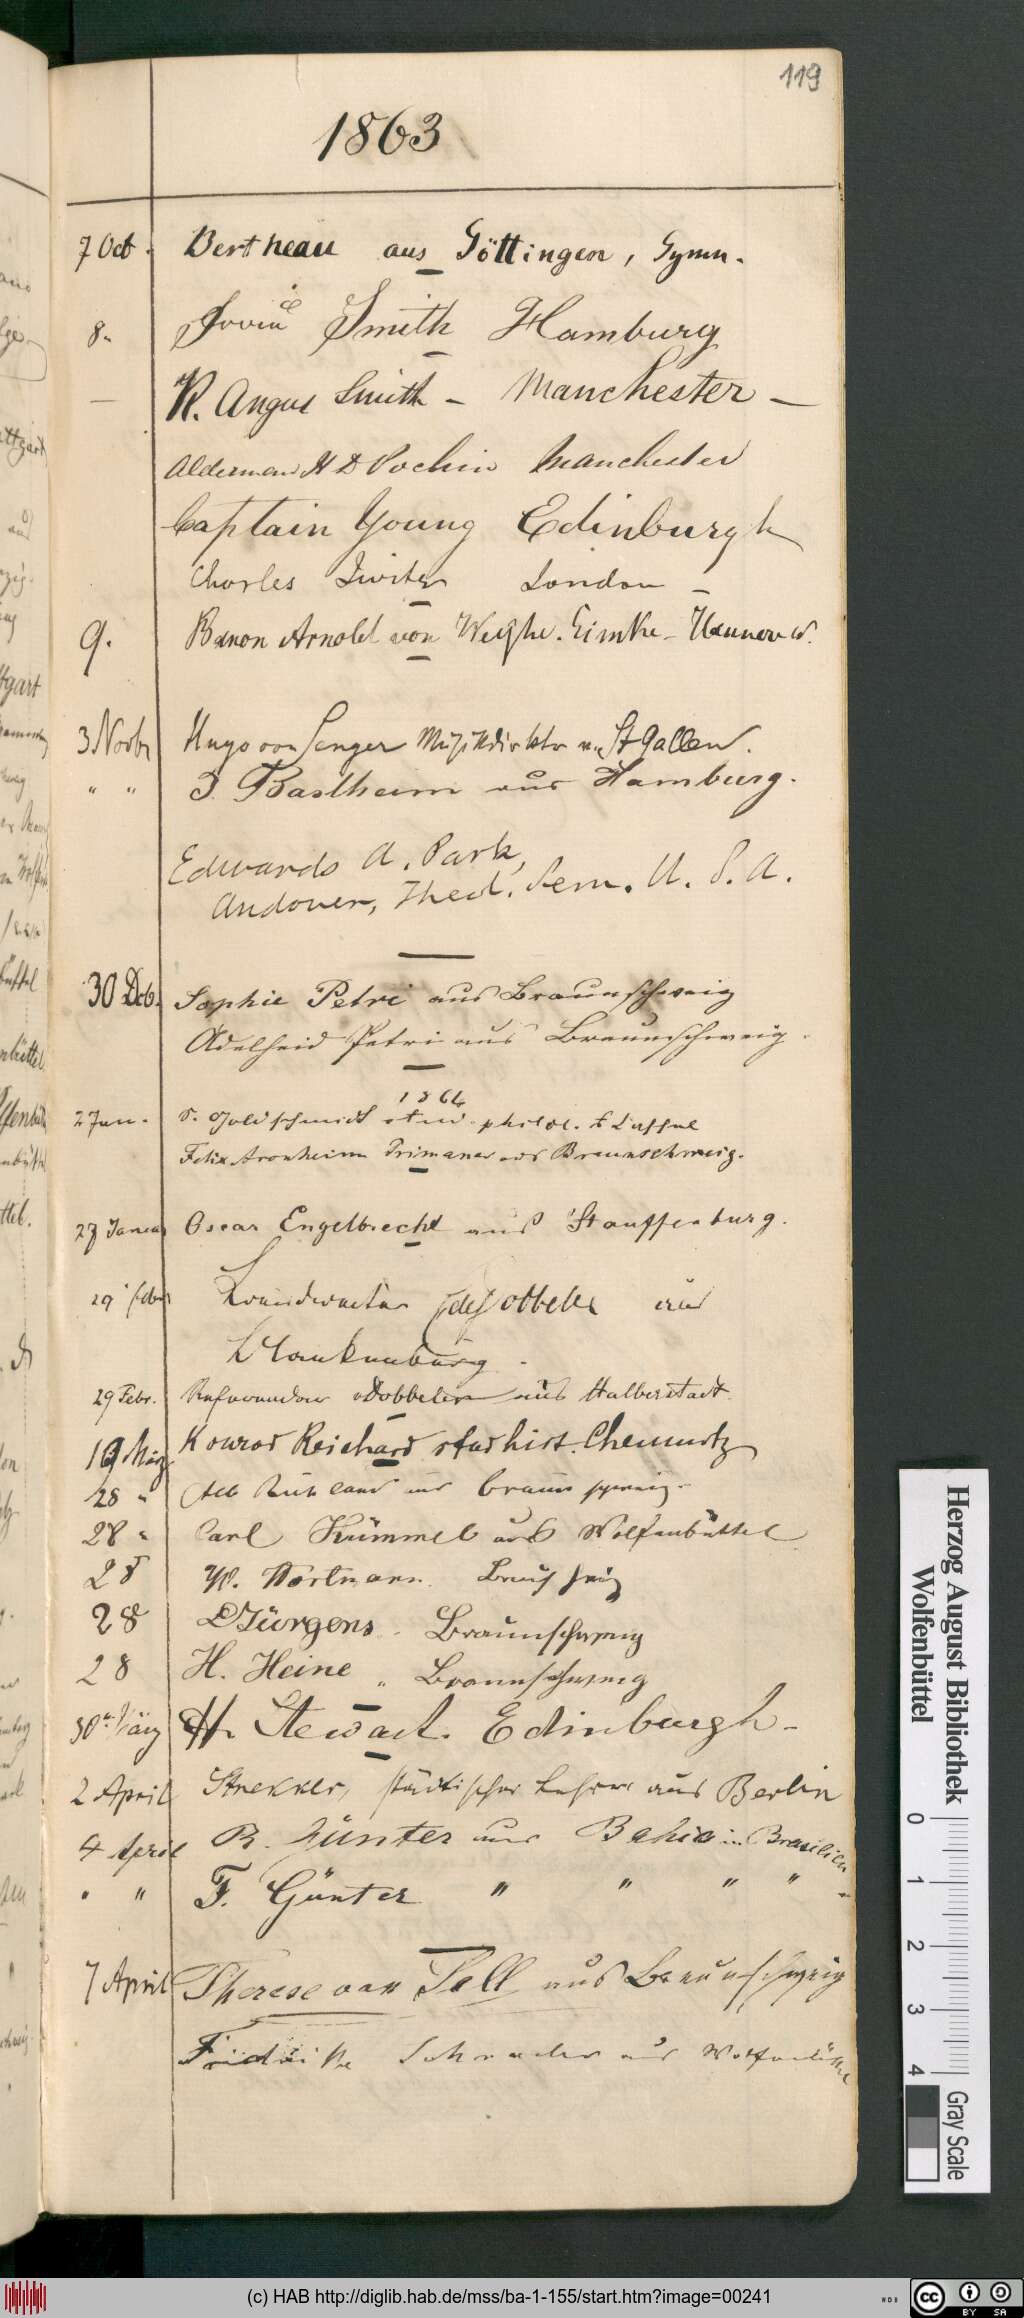 119
1863
7 Oct. Bertheau aus Göttingen, Gymn.
8. Smith Hamburg
— R. Angus Smith – Manchester –
Alderman H D Pochin Manchester
Captain Young Edinburgh
Charles London –
9. Baron Arnold von Weyhe-Eimke – Hannover.
3 Novbr Hugo von Senger Musikdirektor v. St Gallen.
" " J. Bastheim aus Hamburg.
Edwards A. Park,
Andover, Theol. Sem. U. S. A.
30 Dcb. Sophie Petri aus Braunschweig
Adelheid Petri aus Braunschweig.
1864
2 Jan. Goldschmidt stud. philol.
Felix Aronheim Primaner aus Braunschweig.
27 Januar Oscar Engelbrecht aus Stauffenburg.
29 Febr aus
Blankenburg.
29 Febr. Referendar vDobbeler aus Halberstadt
19 März Konrad Reichard stud hist. Chemnitz
28 " Alb Ruhland aus Braunschweig.
28 " Carl Kümmel aus Wolfenbüttel
28 W. Hortmann Braunschweig
28 Jürgens Braunschweig
28 H. Heine " Braunschweig
30ten März H. Stewart. Edinburgh –
2 April Strekker, städtischer Lehrer aus Berlin
4 April R. Günter aus Bahia in Brasilien
" " F. Günter " " " " "
7 April Therese von Sell aus Braunschweig
Schrader aus Wolfenbüttel
Herzog August Bibliothek
Wolfenbüttel
0 1 2 3 4
Gray Scale
(c) HAB http://diglib.hab.de/mss/ba-1-155/start.htm?image=00241
cc BY SA